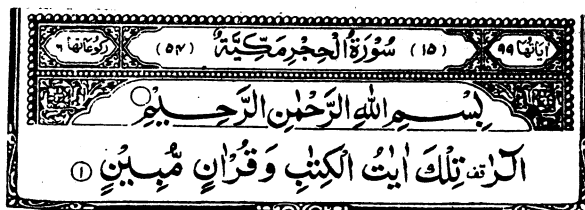 اٰیَاتُهَا ٩٩ (١٥) سُوْرَةُ الْحِجْرِ مَكِّيَّةٌ (٥٤) رُكُوْعَاتُهَا ٦
بِسْمِ اللّٰهِ الرَّحْمٰنِ الرَّحِيْمِ
الٓرٰ قف تِلْكَ اٰيٰتُ الْكِتٰبِ وَ قُرْاٰنٍ مُّبِيْنٍ ١